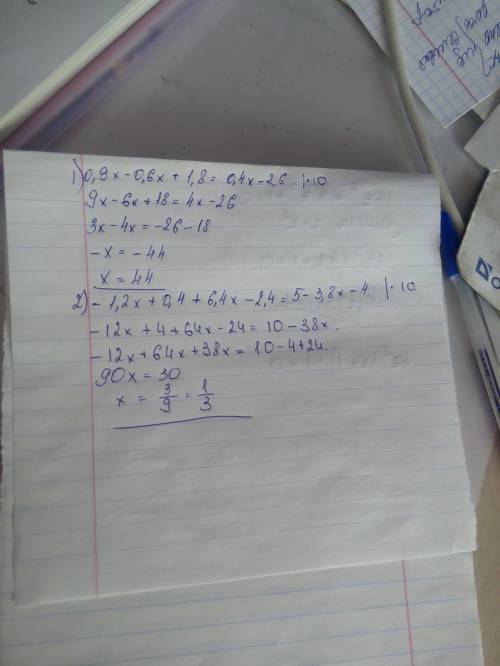 1) 0,9x - 0,6x + 1,8 = 0,4x - 2,6 |·10
9x - 6x + 18 = 4x - 26
3x - 4x = -26 - 18
-x = -44
x = 44
2) -1,2x + 0,4 + 6,4x - 2,4 = 5 - 3,8x - 4. |·10.
-12x + 4 + 64x - 24 = 10 - 38x.
-12x + 64x + 38x = 10 - 4 + 24.
90x = 30
x = 3/9 = 1/3